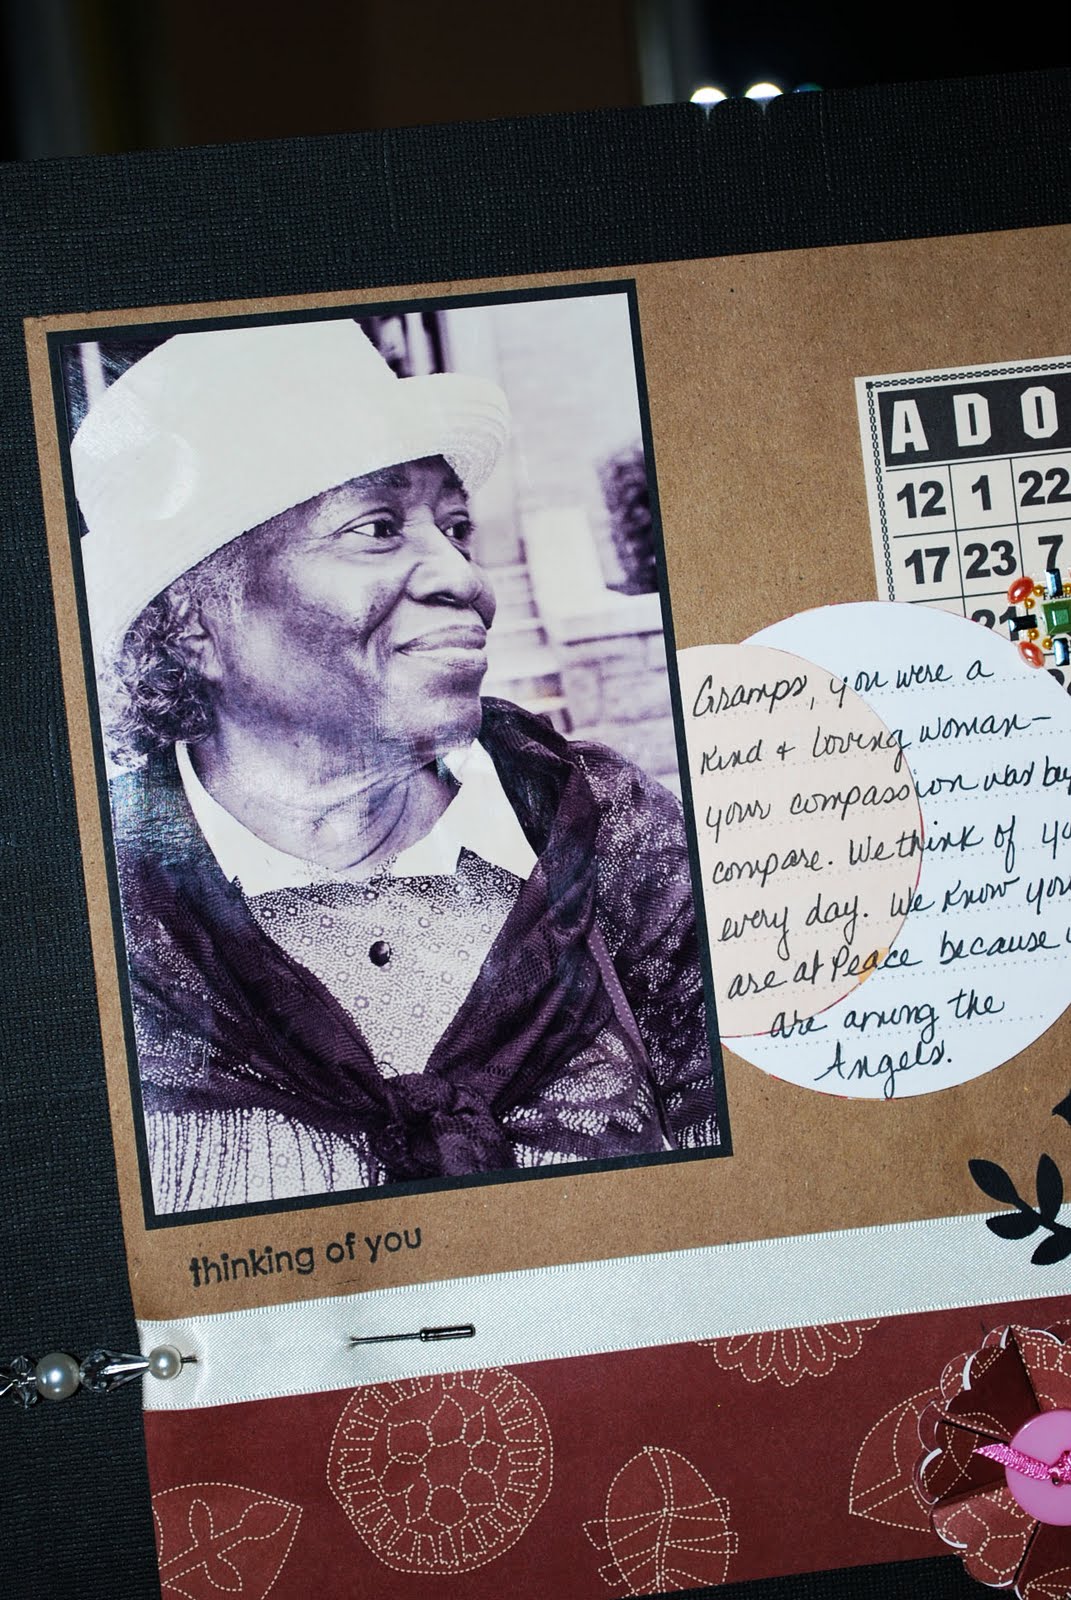 ADO
12 1 22
17 23 7
21
Gramps, you were a
kind + loving woman-
your compassion was bey
compare. We think of yo
every day. We know you
are at Peace because
are among the
Angels.
thinking of you